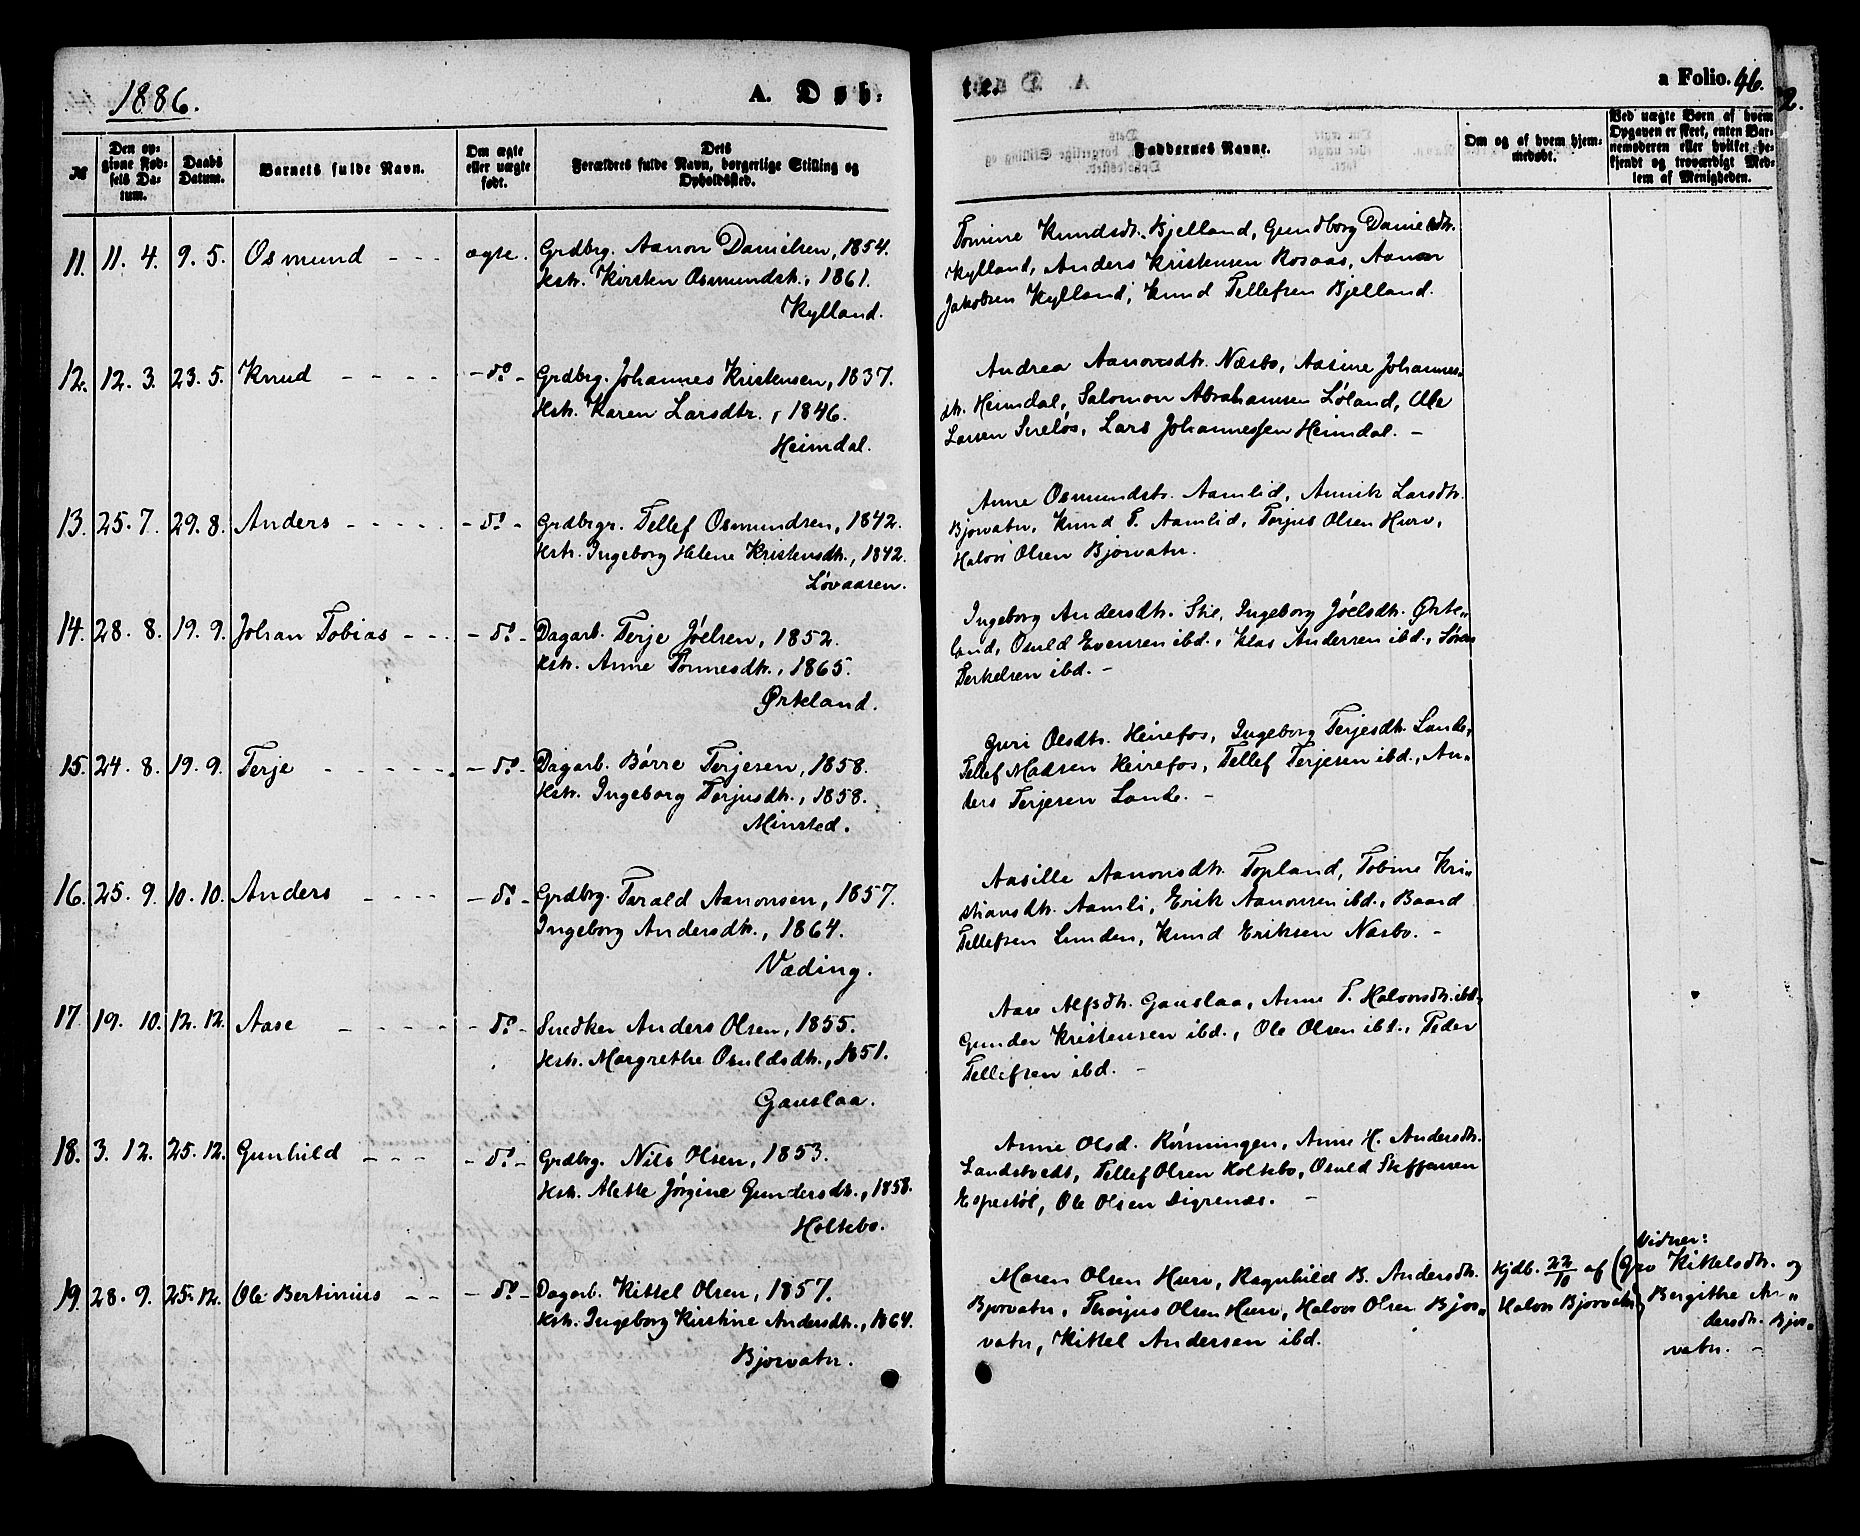 1886.
A. Døb-
te.
a Folio. 46.
2.
№
Den op-
givne Fød-
sels Da-
tum.
Daabs
Datum.
Barnets fulde Navn.
Om ægte
eller uægte
født.
Dets
Forældres fulde Navn, borgerlige Stilling og
Opholdssted.
Faddernes Navne.
Om og af hvem hjem-
medøbt.
Ved uægte Børn af hvem
Opgaven er skeet, enten Bar-
nemoderen eller hvilket be-
kjendt og troværdigt Med-
lem af Menigheden.
11. 11. 4. 9. 5. Osmund - - - ægte. Grdbrg. Aanon Danielsen, 1854.
Hstr. Kirsten Osmundsdtr., 1861.
Kylland.
Tomine Knudsdtr. Bjelland, Gundborg Danielsdtr.
Kylland, Anders Kristensen Rosaas, Aanon
Jakobsen Kylland, Knud Tellefsen Bjelland.
12. 12. 3. 23. 5. Knud - - - - - do - Grdbrg. Johannes Kristensen, 1837.
Hstr. Karen Larsdtr., 1846.
Heimdal.
Andrea Aanonsdtr. Næsbø, Aasine Johannes-
dtr. Heimdal, Salomon Abrahamsen Løland, Ole
Larsen Sireløs, Lars Johannessen Heimdal. -
13. 25. 7. 29. 8. Anders - - - - - - do - Grdbrgr. Tellef Osmundsen, 1842.
Hstr. Ingeborg Helene Kristensdtr., 1842.
Løvaasen.
Anne Osmundsdtr. Aamlid, Annik Larsdtr.
Bjorvatn, Knud T. Aamlid, Torjus Olsen Hurv,
Halvor Olsen Bjorvatn.
14. 28. 8. 19. 9. Johan Tobias - - - - do - Dagarb. Terje Jóelsen, 1852.
Hstr. Anne Tonnesdtr., 1865.
Ørkland.
Ingeborg Andersdtr. Stie, Ingeborg Jóelsdtr. Ørke-
land, Osuld Evensen ibd., Klas Andersen ibd., Søren
Terkelsen ibd. -
15. 24. 8. 19. 9. Terje - - - - - - do - Dagarb. Børre Terjesen, 1858.
Hstr. Ingeborg Torjusdtr., 1858.
Minsted.
Guri Olsdtr. Heirefos, Ingeborg Terjesdtr. Lande,
Tellef Madsen Heirefos, Tellef Terjesen ibd., An-
ders Terjesen Lande. -
16. 25. 9. 10. 10. Anders - - - - - do - Grdbrg. Tarald Aanonsen, 1857.
Ingeborg Andersdtr., 1864.
Væding.
Aasille Aanonsdtr. Topland, Tobine Kri-
stiansdtr. Aamli, Erik Aanonsen ibd., Baard
Tellefsen Lunden, Knud Eriksen Næsbø. -
17 19. 10. 12. 12. Aase - - - - - do - Snedker Anders Olsen, 1855.
Hstr. Margrethe Osuldsdtr., 1851.
Gauslaa.
Aase Alfsdtr. Gauslaa, Anne T. Halvorsdtr. ibd.,
Gunder Kristensen ibd., Ole Olsen ibd., Peder
Tellefsen ibd. -
18. 3. 12. 25. 12. Gunhild - - - - do - Grdbrg. Nils Olsen, 1853.
Hstr. Alette Jørgine Gundersdtr., 1858.
Holtebo.
Anne Olsd. Rønningen, Anne H. Andersdtr.
Landstvedt, Tellef Olsen Holtebo, Osuld Steffensen
Espestøl, Ole Olsen Digrenæs. -
19. 28. 9. 25. 12. Ole Bertinius - - - do - Dagarb. Kittel Olsen, 1857.
Hstr. Ingeborg Kirstine Andersdtr., 1864.
Bjorvatn.
Maren Olsen Hurv, Ragnhild B. Andersdtr.
Bjorvatn, Thorjus Olsen Hurv, Halvor Olsen Bjor-
vatn, Kittel Andersen ibd.
Hjdb. 22/10 af
Halvor Bjorvatn
Vidner:
(Gro Kittelsdtr. og
Bergithe An-
dersdtr. Bjor-
vatn. -